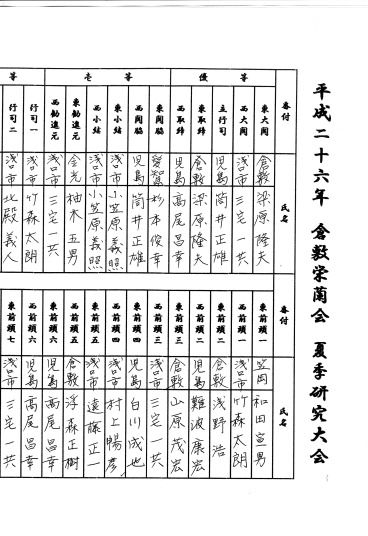 平成二十六年 倉敷栄蘭会 夏季研究大会
番付 氏名
優等
東大関 倉敷 梁原隆夫
西大関 浅口市 三宅一共
立行司 児島 筒井正雄
東取締 倉敷 梁原隆夫
西取締 児島 高尾昌幸
壱等
東関脇 愛媛 杉本俊幸
西関脇 児島 筒井正雄
東小結 浅口市 小笠原義照
西小結 浅口市 小笠原義照
東勧進元 金光 柚木五男
西勧進元 浅口市 三宅一共
等
行司一 浅口市 竹森太朗
行司二 浅口市 北殿義人
番付 氏名
東前頭一 笠岡 和田宣男
西前頭一 浅口市 竹森太朗
東前頭二 倉敷 浅野浩
西前頭二 児島 難波康宏
東前頭三 倉敷 山原茂宏
西前頭三 浅口市 三宅一共
東前頭四 児島 白川成也
西前頭四 浅口市 村上暢彦
東前頭五 浅口市 遠藤正一
西前頭五 倉敷 浮森正樹
東前頭六 児島 高尾昌幸
西前頭六 児島 高尾昌幸
東前頭七 浅口市 三宅一共